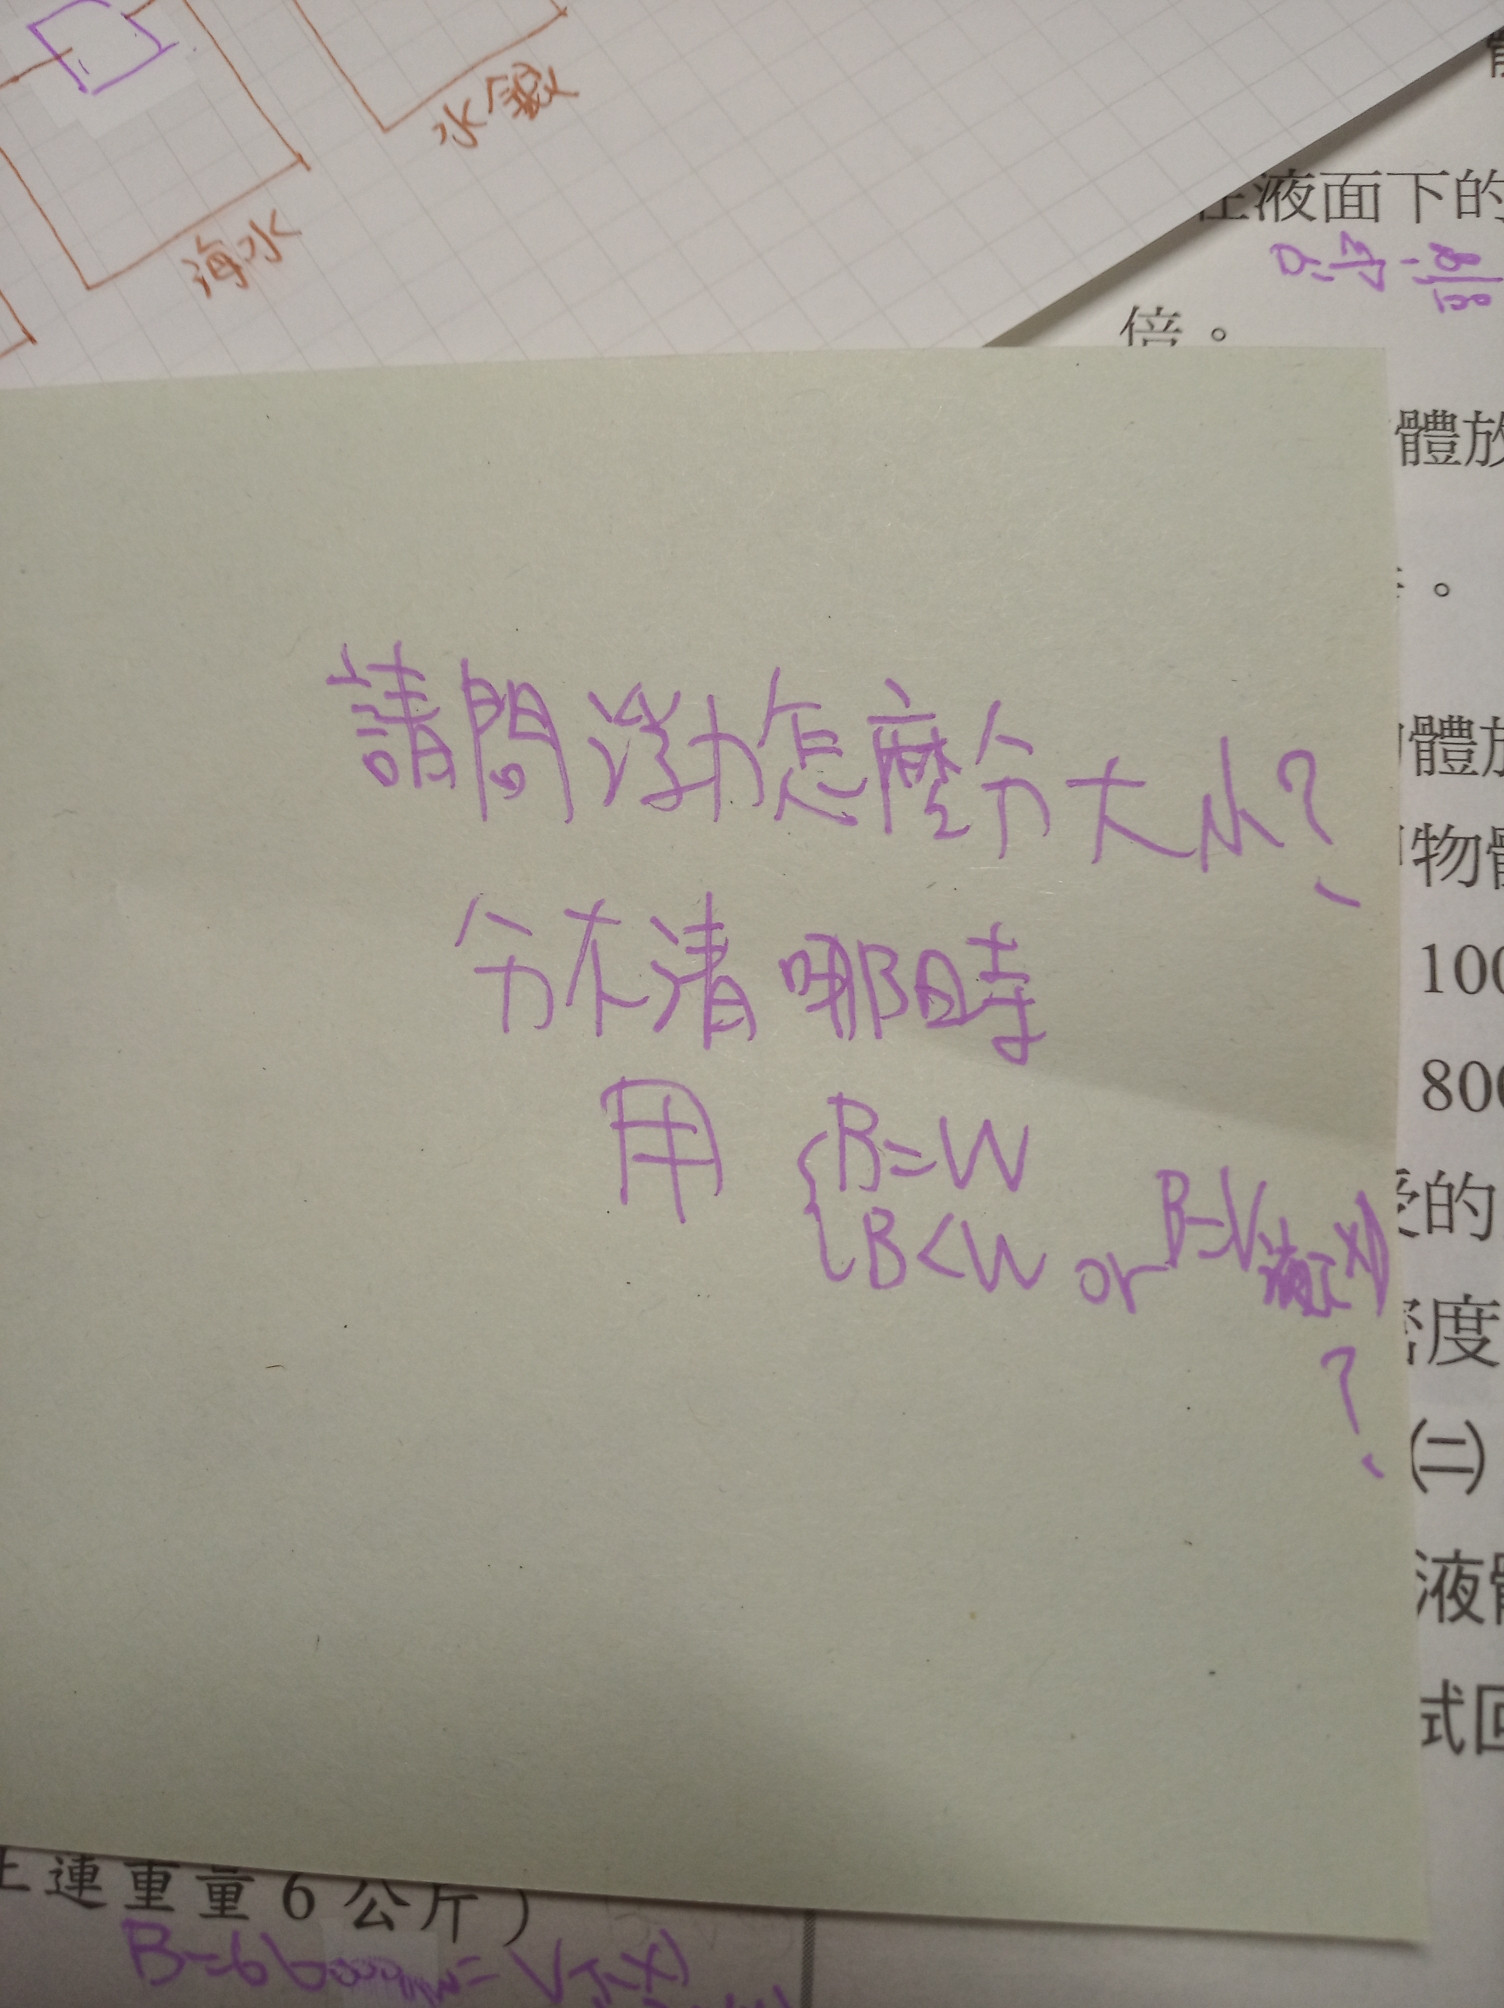 水銀
海水
在液面下的
倍。
體放
。
請問浮力怎麼分大小?
體放
物體
分不清哪時
100
800
用 { B=W
B<W or B=V液下×D
?
受的
密度
(二)
液體
式回
上連重量6公斤)